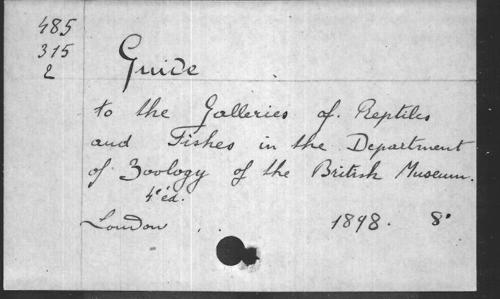 485
315
2
Guide
to the Galleries of Reptiles
and Fishes in the Department
of Zoology of the British Museum.
4e éd.
London . . 1898. 8°